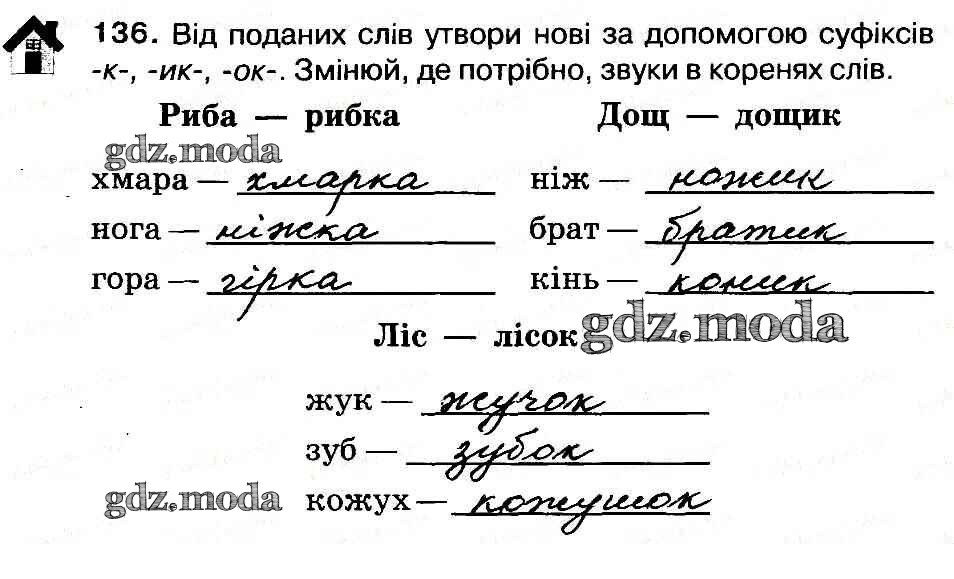 136. Від поданих слів утвори нові за допомогою суфіксів
-к-, -ик-, -ок-. Змінюй, де потрібно, звуки в коренях слів.
Риба — рибка
Дощ — дощик
gdz.moda
хмара — хмарка
ніж — ножик
нога — ніжка
брат — братик
гора — гірка
кінь — коник
Ліс — лісок
gdz.moda
жук — жучок
зуб — зубок
gdz.moda
кожух — кожушок